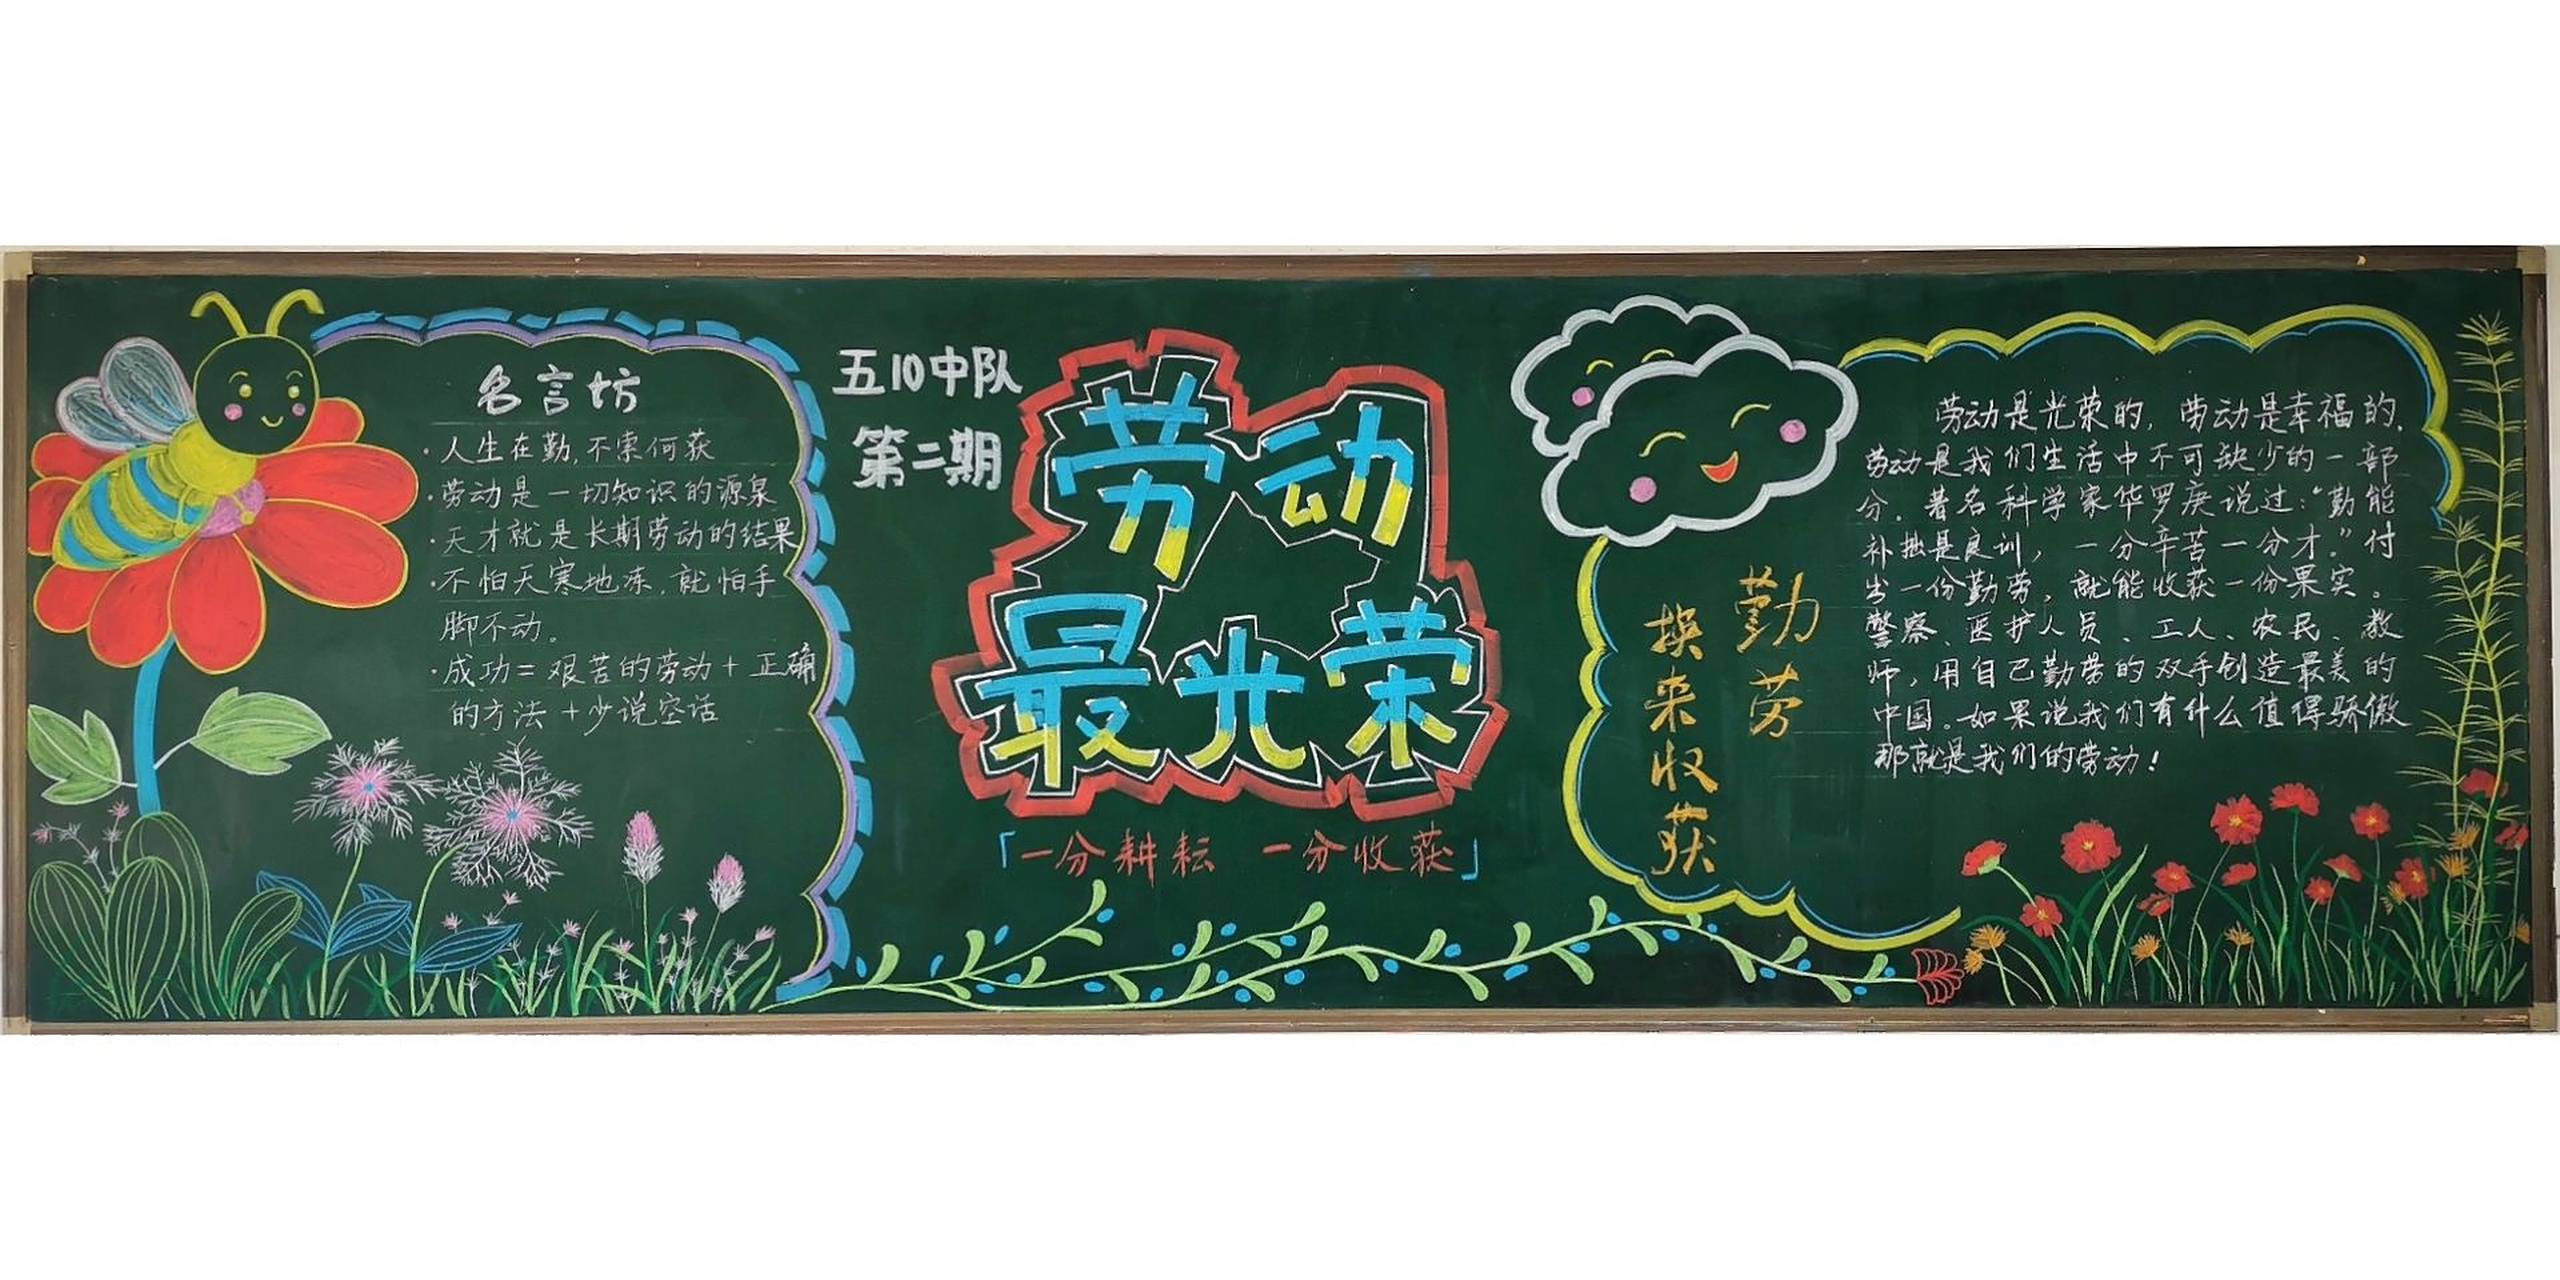 名言坊
·人生在勤,不索何获
·劳动是一切知识的源泉
·天才就是长期劳动的结果
·不怕天寒地冻,就怕手
脚不动。
·成功=艰苦的劳动+正确
的方法+少说空话
五10中队
第二期
劳动
最光荣
「一分耕耘 一分收获」
勤劳
换来收获
劳动是光荣的,劳动是幸福的.
劳动是我们生活中不可缺少的一部
分.著名科学家华罗庚说过:“勤能
补拙是良训,一分辛苦一分才.”付
出一份勤劳,就能收获一份果实。
警察、医护人员、工人、农民、教
师,用自己勤劳的双手创造最美的
中国。如果说我们有什么值得骄傲
那就是我们的劳动!